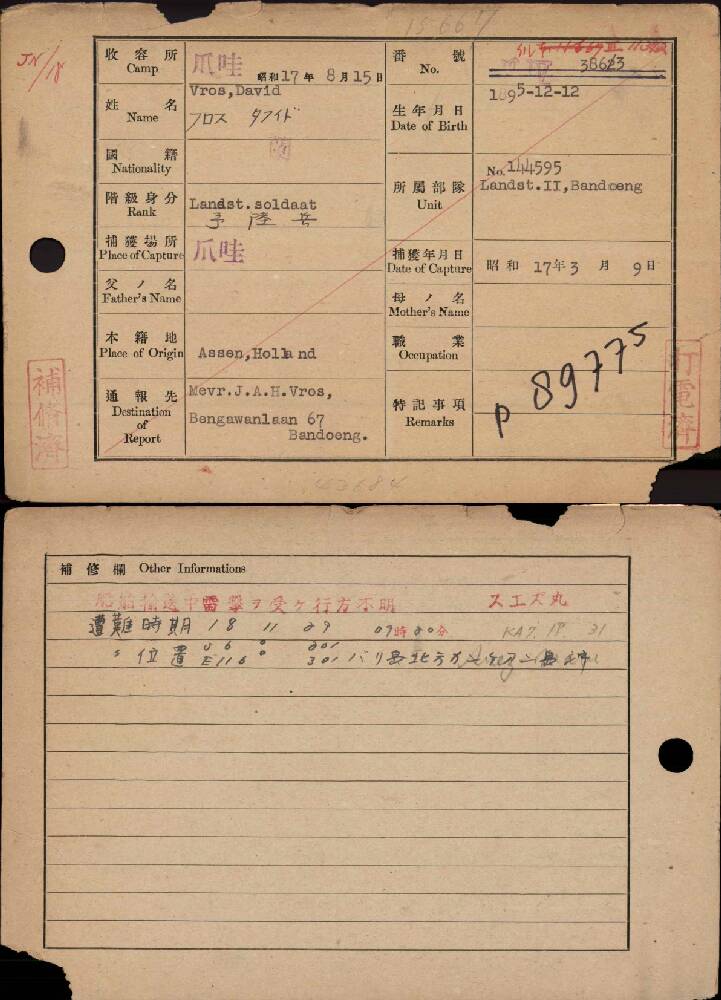 収容所
Camp
爪哇
昭和17年 8月15日
番號
No.
38623
姓名
Name
Vros,David
フロス ダフイド
生年月日
Date of Birth
1895-12-12
國籍
Nationality
蘭
階級身分
Rank
Landst.soldaat
陸 兵
所屬部隊
Unit
No.144595
Landst.II,Bandoeng
捕獲場所
Place of Capture
爪哇
捕獲年月日
Date of Capture
昭和 17年3月 9日
父ノ名
Father's Name
母ノ名
Mother's Name
本籍地
Place of Origin
Assen,Holland
職業
Occupation
通報先
Destination
of
Report
Mevr.J.A.H.Vros,
Bengawanlaan 67
Bandoeng.
特記事項
Remarks
P 89775
補修濟
打電濟
42684
補修欄 Other Informations
船舶輸送中雷擊ヲ受ケ行方不明 スエズ丸
遭難時期 18 11 29 09時20分
〃 位置
E116° 301 バリ島北方